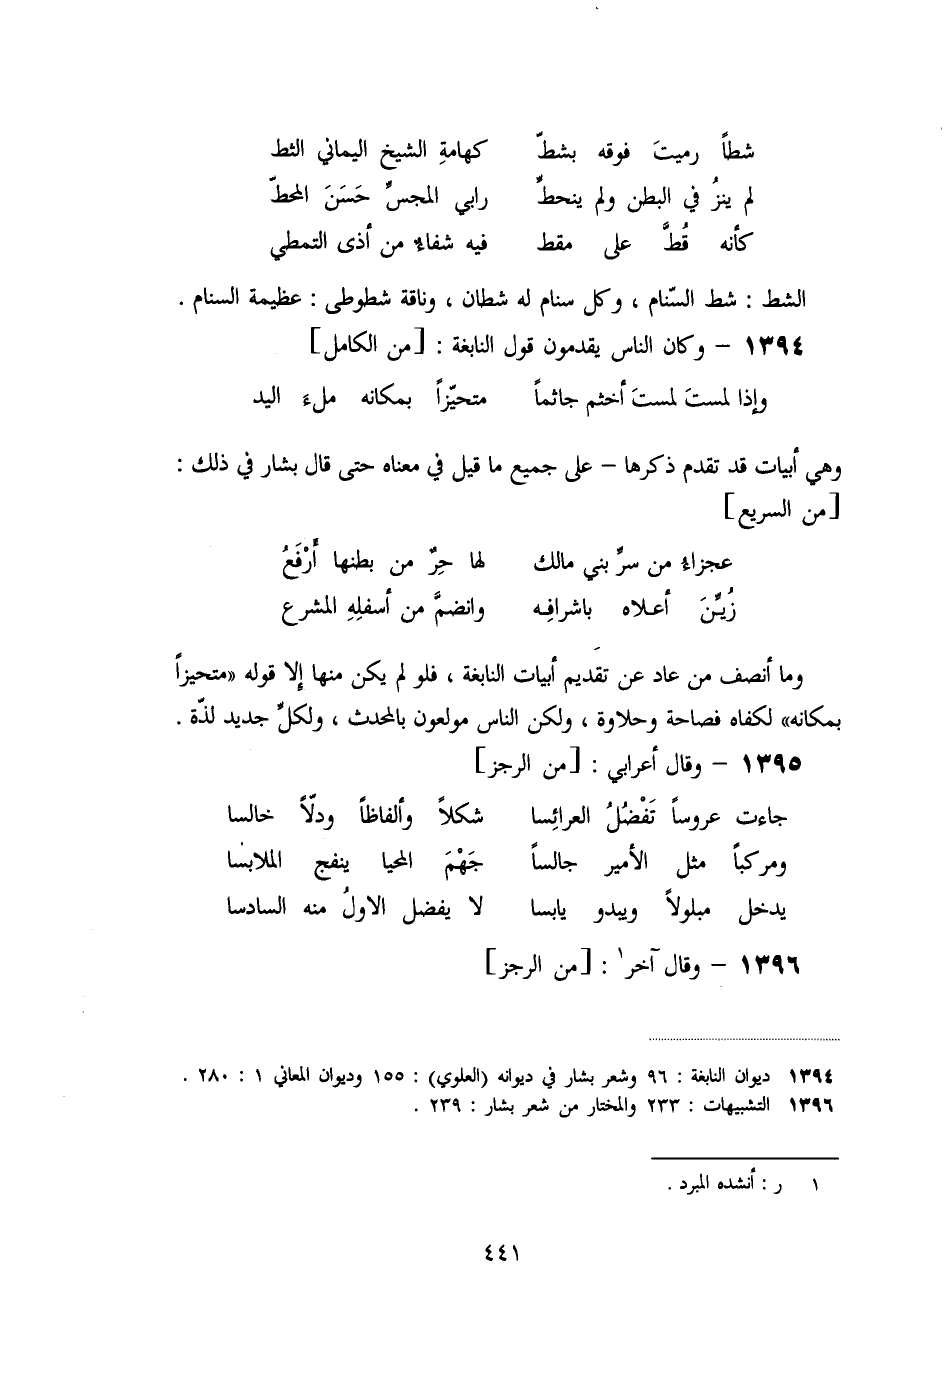 شطاً رميتَ فوقه بشطّ كهامةِ الشيخ اليماني الثط
لم ينزُ في البطن ولم ينحطُّ رابي المجسِّ حَسَنَ المحطّ
كأنه قُطَّ على مقط فيه شفاءٌ من أذى التمطي
الشط : شط السّنام ، وكل سنام له شطان ، وناقة شطوطى : عظيمة السنام .
١٣٩٤ - وكان الناس يقدمون قول النابغة : [من الكامل]
وإذا لمستَ لمستَ أخثم جاثماً متحيّزاً بمكانه ملءَ اليد
وهي أبيات قد تقدم ذكرها - على جميع ما قيل في معناه حتى قال بشار في ذلك :
[من السريع]
عجزاءُ من سرِّ بني مالك لها حِرٌ من بطنها أَرْفَعُ
زُيِّنَ أعلاه باشرافِه وانضمَّ من أسفلِهِ المشرع
وما أنصف من عاد عن تقديم أبيات النابغة ، فلو لم يكن منها إلا قوله «متحيزاً
بمكانه» لكفاه فصاحة وحلاوة ، ولكن الناس مولعون بالمحدث ، ولكلِّ جديد لذّة .
١٣٩٥ - وقال أعرابي : [من الرجز]
جاءت عروساً تَفْضُلُ العرائِسا شكلاً وألفاظاً ودلّاً خالسا
ومركباً مثل الأمير جالساً جَهْمَ المحيا ينفج الملابسا
يدخل مبلولاً ويبدو يابسا لا يفضل الاولُ منه السادسا
١٣٩٦ - وقال آخر١ : [من الرجز]
١٣٩٤ ديوان النابغة : ٩٦ وشعر بشار في ديوانه (العلوي) : ١٥٥ وديوان المعاني ١ : ٢٨٠ .
١٣٩٦ التشبيهات : ٢٣٣ والمختار من شعر بشار : ٢٣٩ .
١ ر : أنشده المبرد .
٤٤١